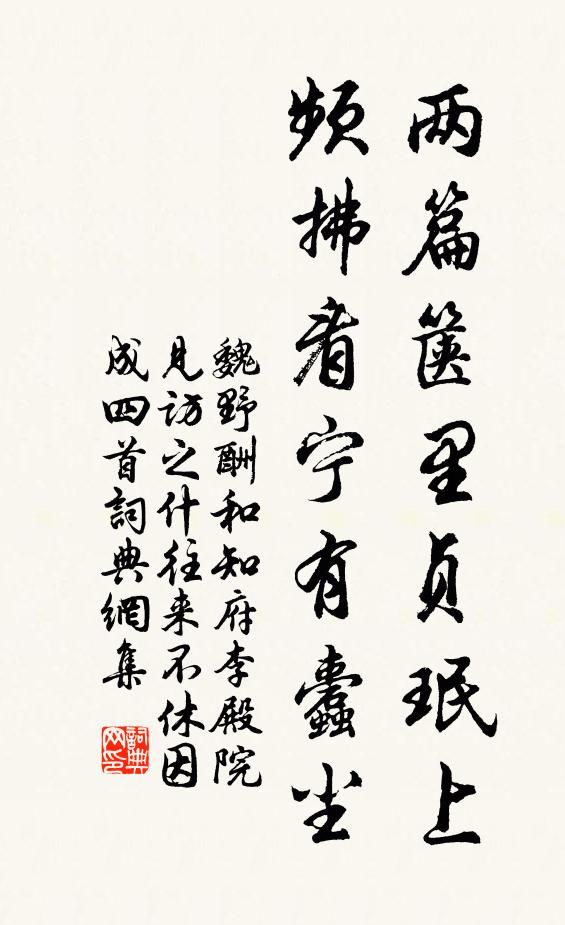 两篇箧里贞珉上
频拂看宁有蠹尘
魏野酬和知府李殿院
见访之什往来不休因
成四首詞典網集
詞典网印